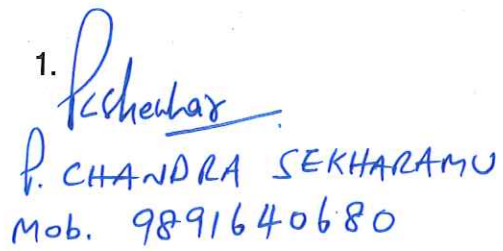 1. Pcshekhar
P. CHANDRA SEKHARAMU
Mob. 9891640680